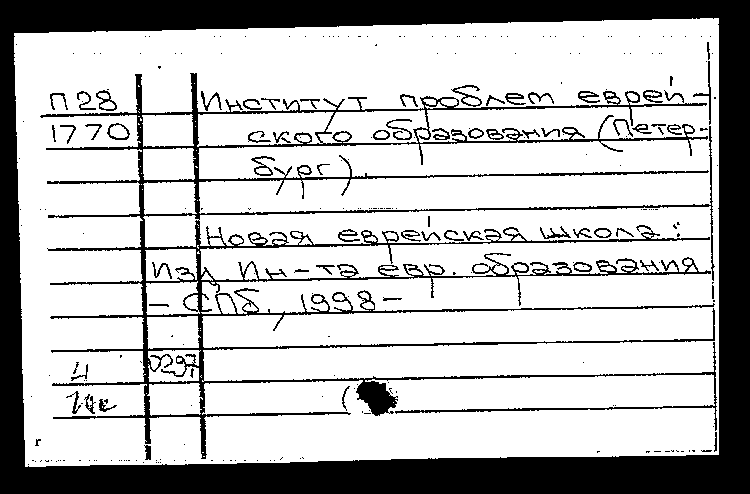 П28 Институт проблем еврей-
1770 ского образования (Петер-
бург).
Новая еврейская школа:
Изд Ин-та евр. образования
- СПб., 1998-
0297
4